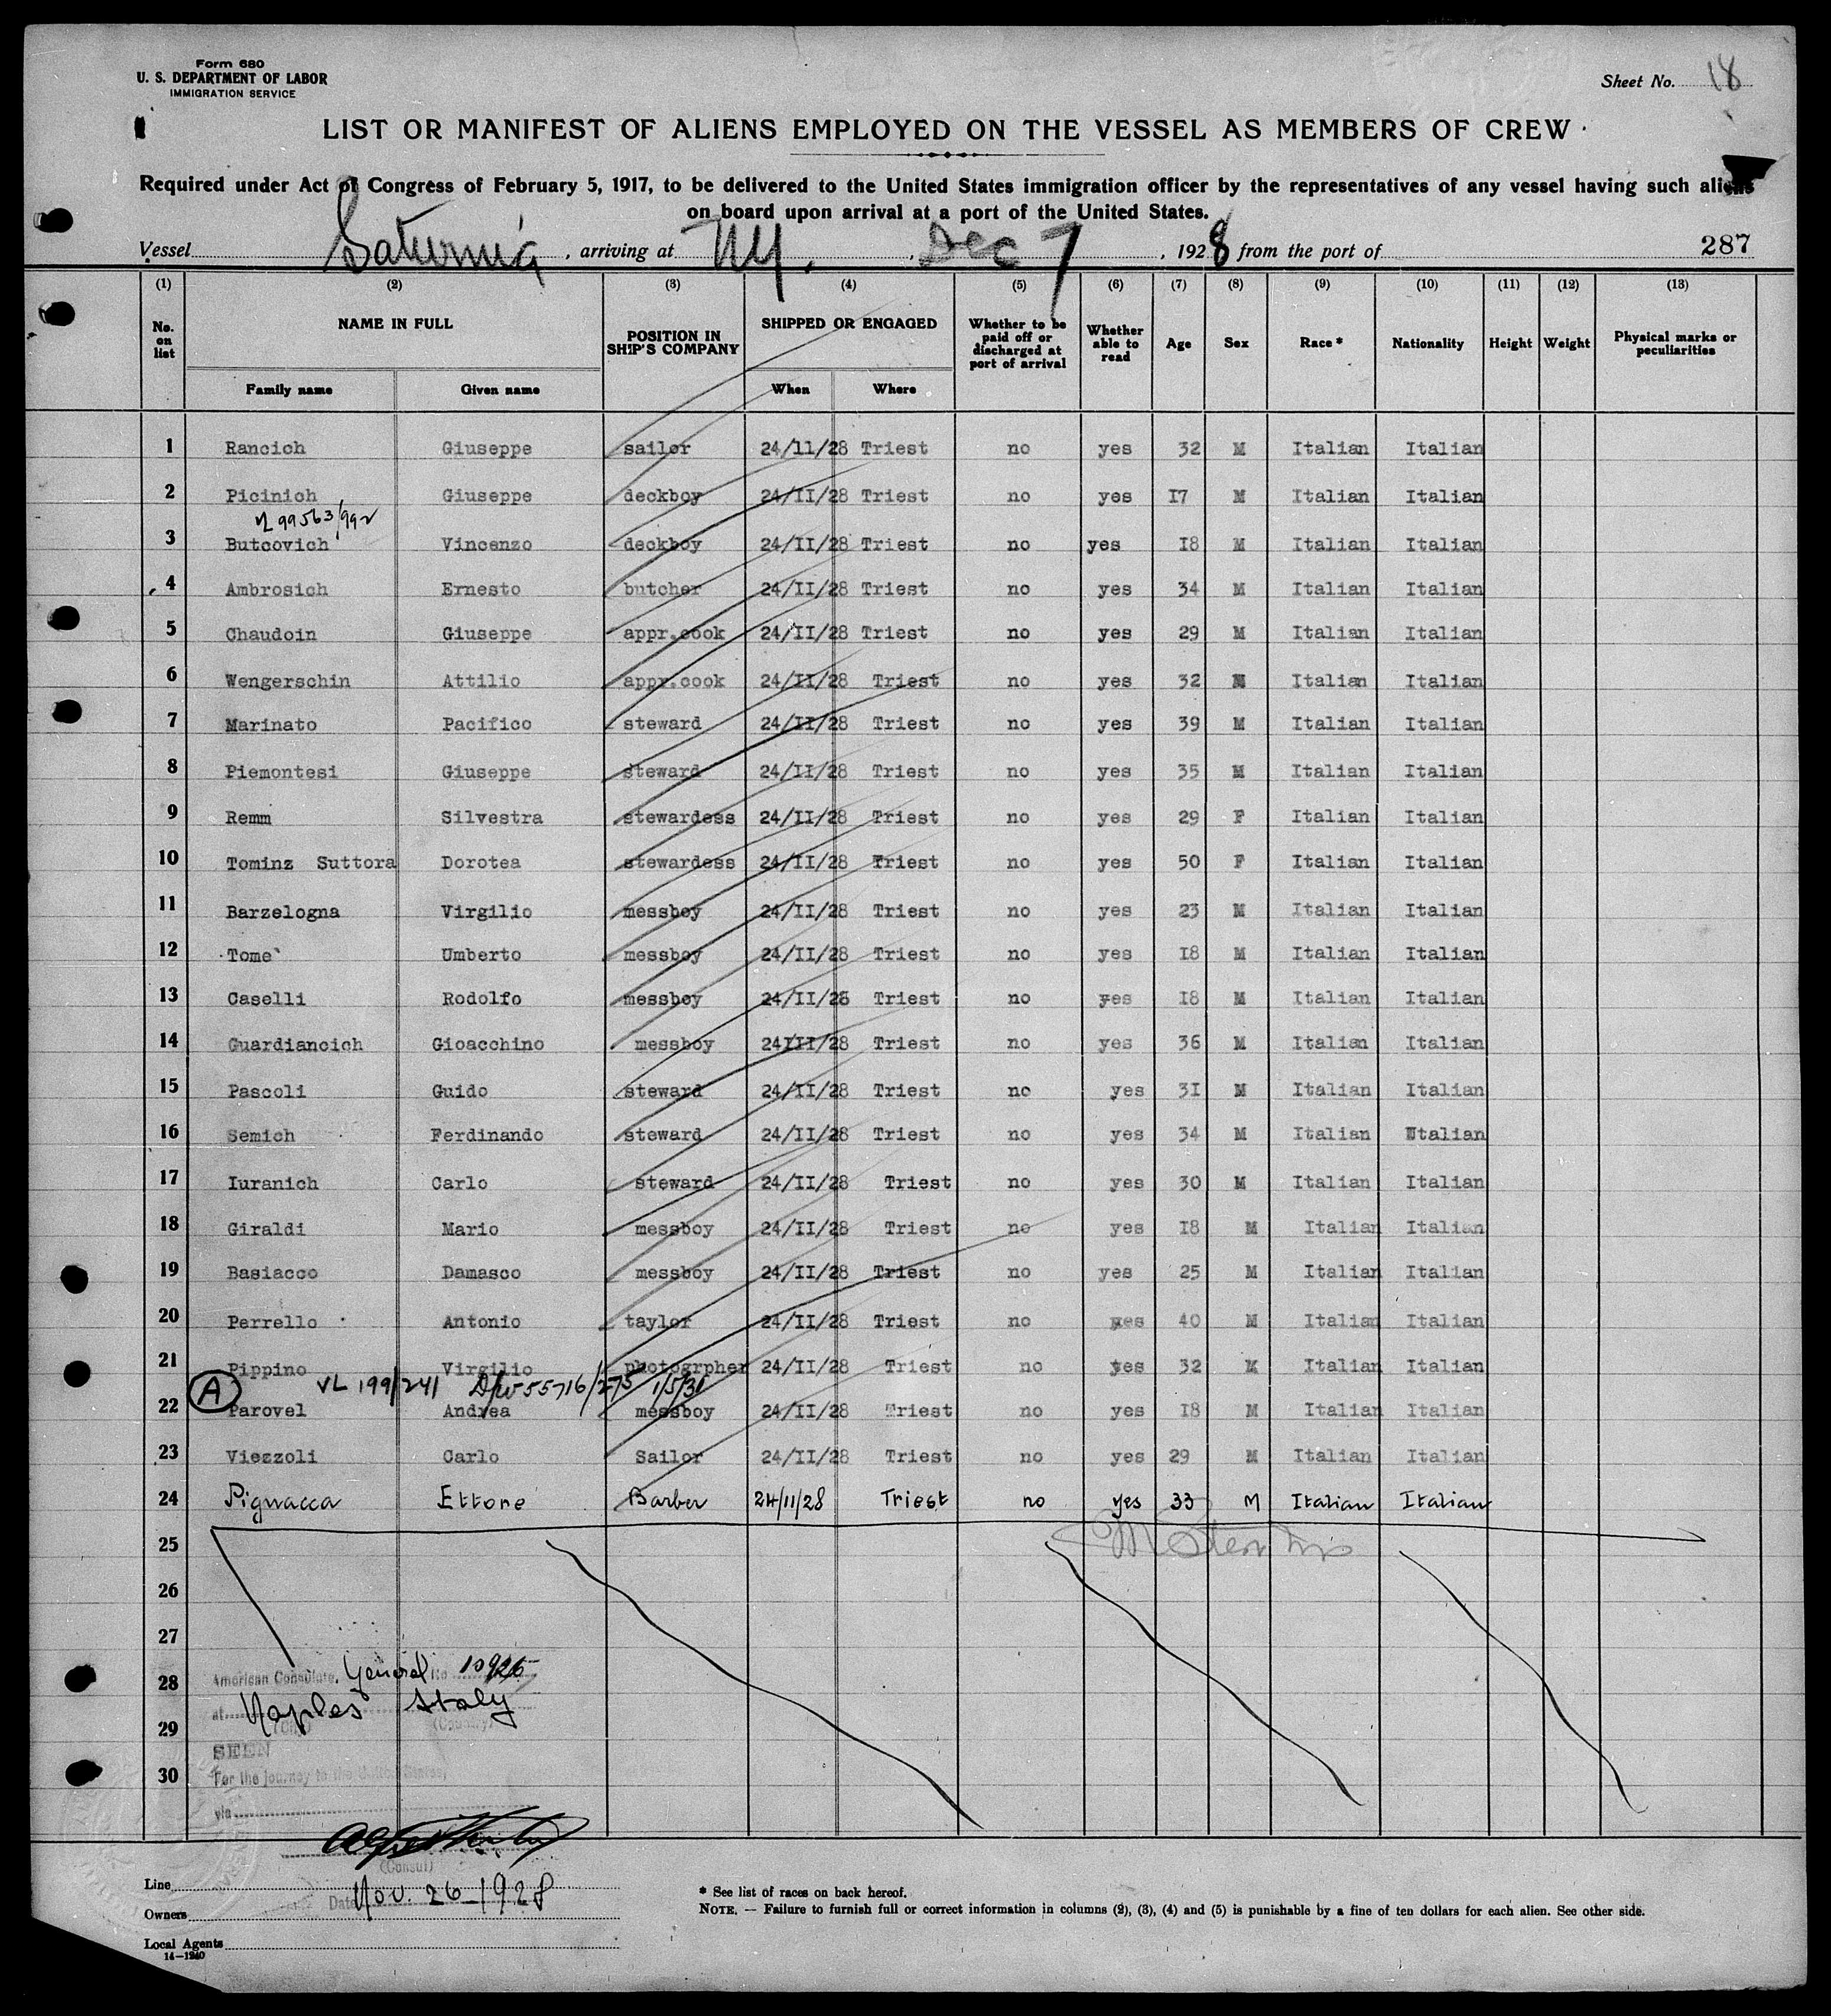 Form 680
U. S. DEPARTMENT OF LABOR
IMMIGRATION SERVICE
Sheet No. 18
LIST OR MANIFEST OF ALIENS EMPLOYED ON THE VESSEL AS MEMBERS OF CREW
Required under Act of Congress of February 5, 1917, to be delivered to the United States immigration officer by the representatives of any vessel having such aliens
on board upon arrival at a port of the United States.
Vessel Saturnia, arriving at NY, Dec 7, 1928 from the port of 287
(1) (2) (3) (4) (5) (6) (7) (8) (9) (10) (11) (12) (13)
No. on list NAME IN FULL Family name Given name POSITION IN SHIP'S COMPANY SHIPPED OR ENGAGED When Where Whether to be paid off or discharged at port of arrival Whether able to read Age Sex Race * Nationality Height Weight Physical marks or peculiarities
1 Rancich Giuseppe sailor 24/11/28 Triest no yes 32 M Italian Italian
2 Picinich Giuseppe deckboy 24/II/28 Triest no yes I7 M Italian Italian
99563/992
3 Butcovich Vincenzo deckboy 24/II/28 Triest no yes I8 M Italian Italian
4 Ambrosich Ernesto butcher 24/II/28 Triest no yes 34 M Italian Italian
5 Chaudoin Giuseppe appr.cook 24/II/28 Triest no yes 29 M Italian Italian
6 Wengerschin Attilio appr.cook 24/II/28 Triest no yes 32 M Italian Italian
7 Marinato Pacifico steward 24/II/28 Triest no yes 39 M Italian Italian
8 Piemontesi Giuseppe steward 24/II/28 Triest no yes 35 M Italian Italian
9 Remm Silvestra stewardess 24/II/28 Triest no yes 29 F Italian Italian
10 Tominz Suttora Dorotea stewardess 24/II/28 Triest no yes 50 F Italian Italian
11 Barzelogna Virgilio messboy 24/II/28 Triest no yes 23 M Italian Italian
12 Tome` Umberto messboy 24/II/28 Triest no yes I8 M Italian Italian
13 Caselli Rodolfo messboy 24/II/28 Triest no yes I8 M Italian Italian
14 Guardiancich Gioacchino messboy 24III/28 Triest no yes 36 M Italian Italian
15 Pascoli Guido steward 24/II/28 Triest no yes 3I M Italian Italian
16 Semich Ferdinando steward 24/II/28 Triest no yes 34 M Italian Italian
17 Iuranich Carlo steward 24/II/28 Triest no yes 30 M Italian Italian
18 Giraldi Mario messboy 24/II/28 Triest no yes I8 M Italian Italian
19 Basiacco Damasco messboy 24/II/28 Triest no yes 25 M Italian Italian
20 Perrello Antonio taylor 24/II/28 Triest no yes 40 M Italian Italian
21 Pippino Virgilio photogrpher 24/II/28 Triest no yes 32 M Italian Italian
A VL 199/241 55716/275 1/5/31
22 Parovel Andrea messboy 24/II/28 Triest no yes I8 M Italian Italian
23 Viezzoli Carlo Sailor 24/II/28 Triest no yes 29 M Italian Italian
24 Pignacca Ettore Barber 24/11/28 Triest no yes 33 M Italian Italian
25
26
27
28 American Consulate General No 10926
at Naples Italy
29 (City) (Country)
SEEN
30 For the journey to the United States,
via
(Consul)
Line
Date Nov. 26-1928
Owners
Local Agents
14—1240
* See list of races on back hereof.
NOTE. — Failure to furnish full or correct information in columns (2), (3), (4) and (5) is punishable by a fine of ten dollars for each alien. See other side.